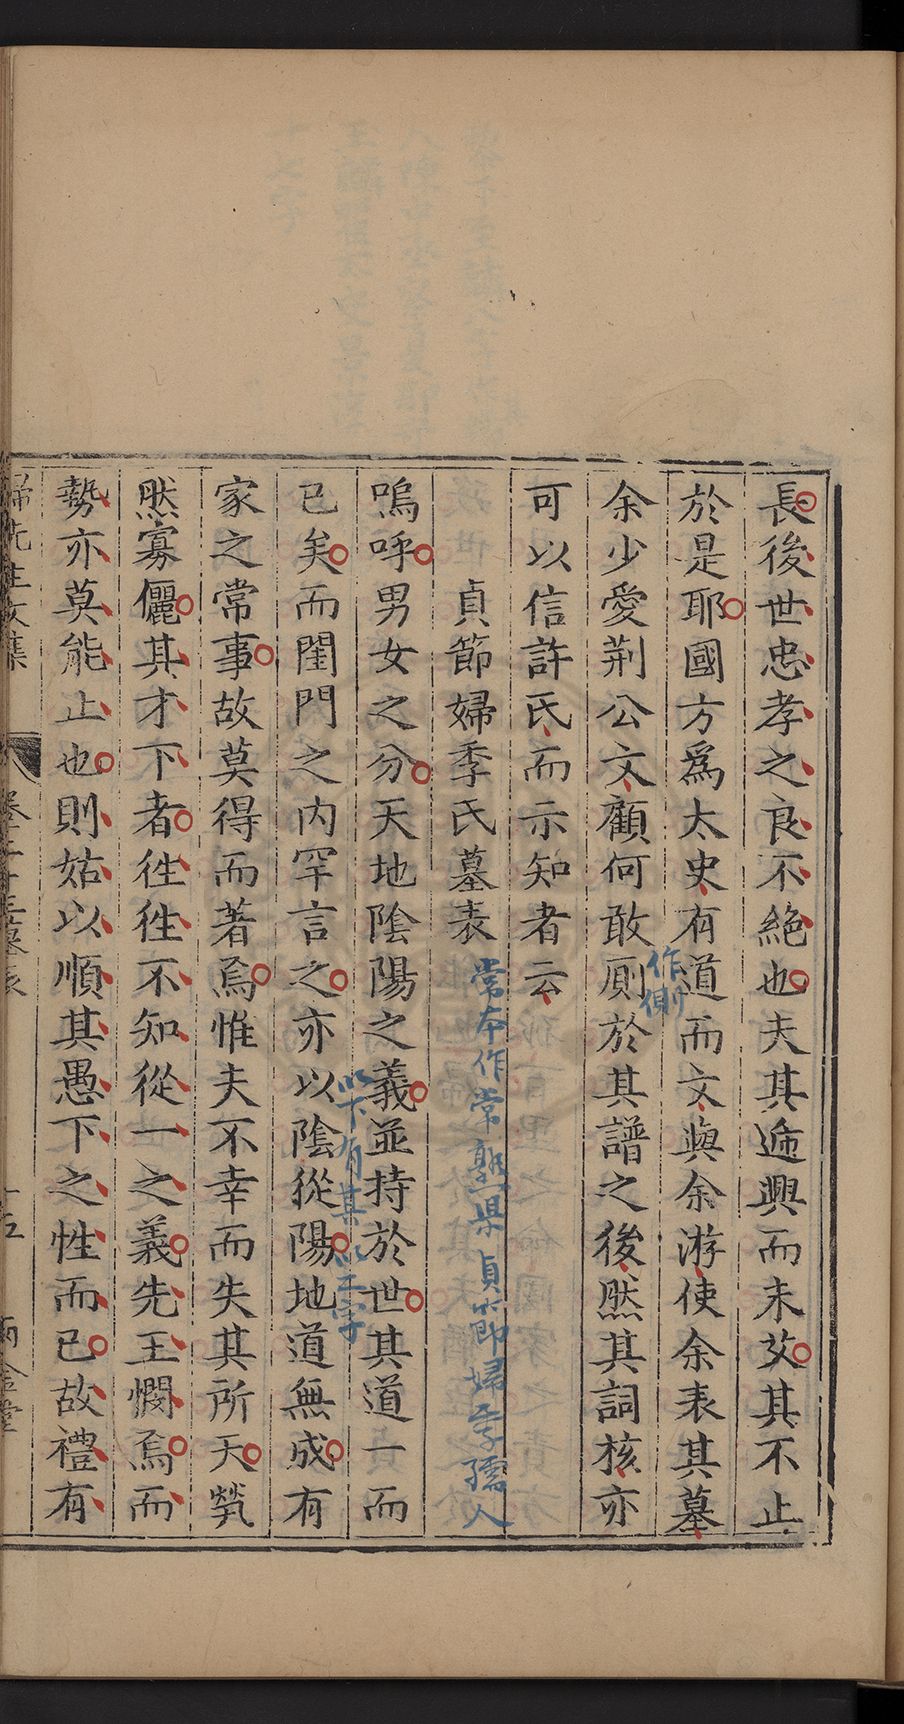 長後世忠孝之良不絶也夫其遞興而未艾其不止
於是耶國方爲太史有道而文與余游使余表其墓
余少愛荆公文顧何敢厠於其譜之後然其詞核亦
作側
可以信許氏而示知者云
貞節婦季氏墓表
常本作常熟县貞節婦季孺人
嗚呼男女之分天地陰陽之義並持於世其道一而
已矣而閨門之内罕言之亦以陰從陽地道無成有
以下有某
家之常事故莫得而著焉惟夫不幸而失其所天煢
然寡儷其才下者徃徃不知從一之義先王憫焉而
勢亦莫能止也則姑以順其愚下之性而已故禮有